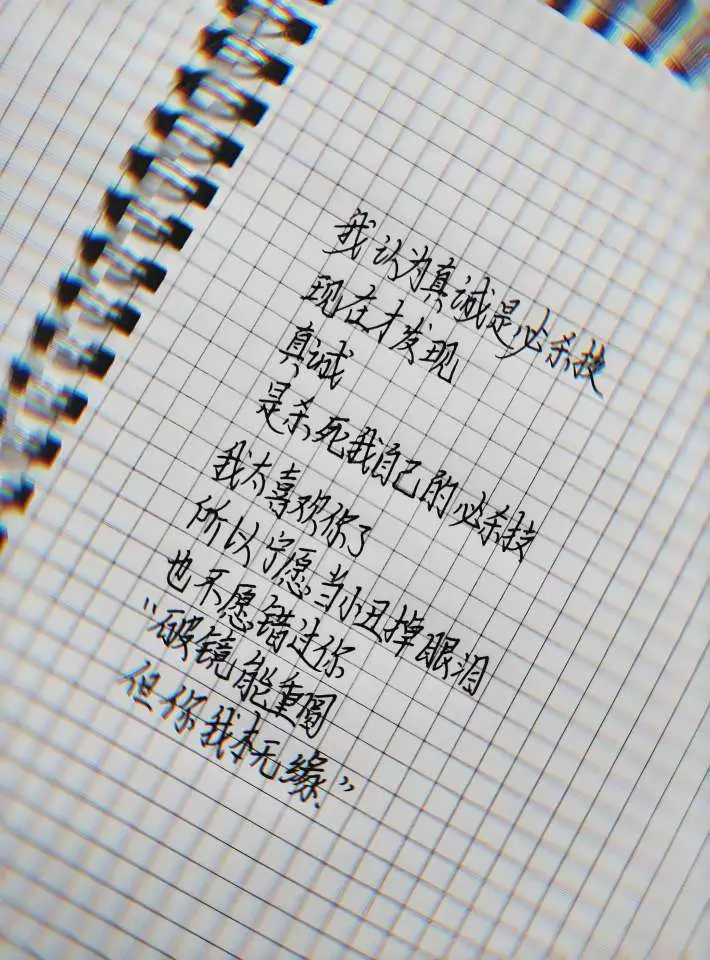 我认为真诚是必杀技
现在才发现
真诚
是杀死我自己的必杀技
我太喜欢你了
所以宁愿当小丑掉眼泪
也不愿错过你
“破镜能重圆
但你我本无缘”